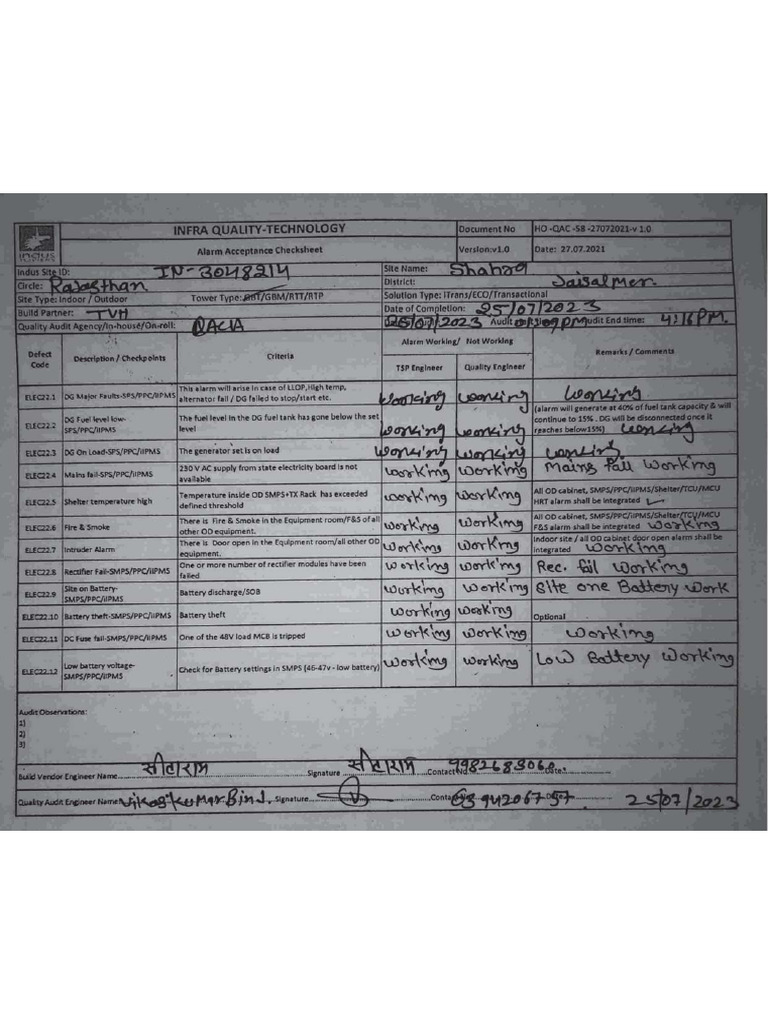 INFRA QUALITY-TECHNOLOGY Document No HO -QAC -S8 -27072021-v 1.0
Alarm Acceptance Checksheet Version:v1.0 Date: 27.07.2021
Indus Site ID: IN-3048214 Site Name:
Circle: Rajasthan District: Jaisalmer.
Site Type: Indoor / Outdoor Tower Type: GBT/GBM/RTT/RTP Solution Type: ITrans/ECO/Transactional
Build Partner: TVH Date of Completion: 25/07/2023
Quality Audit Agency/In-house/On-roll: QACIA 25/07/2023 Audit Audit End time: 4:16PM.
Defect Code Description / Checkpoints Criteria Alarm Working/ Not Working Remarks / Comments
TSP Engineer Quality Engineer
ELEC22.1 DG Major Faults-SPS/PPC/IIPMS This alarm will arise in case of LLOP,High temp, alternator fail / DG failed to stop/start etc. working working working
ELEC22.2 DG Fuel level low-SPS/PPC/IIPMS The fuel level in the DG fuel tank has gone below the set level working working (alarm will generate at 40% of fuel tank capacity & will continue to 15% . DG will be disconnected once it reaches below15%) working
ELEC22.3 DG On Load-SPS/PPC/IIPMS The generator set is on load working working working.
ELEC22.4 Mains fail-SPS/PPC/IIPMS 230 V AC supply from state electricity board is not available working working Mains fail working
ELEC22.5 Shelter temperature high Temperature inside OD SMPS+TX Rack has exceeded defined threshold working working All OD cabinet, SMPS/PPC/IIPMS/Shelter/TCU/MCU HRT alarm shall be integrated ✓
ELEC22.6 Fire & Smoke There is Fire & Smoke in the Equipment room/F&S of all other OD equipment. working working All OD cabinet, SMPS/PPC/IIPMS/Shelter/TCU/MCU F&S alarm shall be integrated working
ELEC22.7 Intruder Alarm There is Door open in the Equipment room/all other OD equipment. working working Indoor site / all OD cabinet door open alarm shall be integrated working
ELEC22.8 Rectifier Fail-SMPS/PPC/IIPMS One or more number of rectifier modules have been failed working working Rec. fail working
ELEC22.9 Site on Battery-SMPS/PPC/IIPMS Battery discharge/SOB working working Site one Battery work
ELEC22.10 Battery theft-SMPS/PPC/IIPMS Battery theft working working Optional
ELEC22.11 DC Fuse fail-SMPS/PPC/IIPMS One of the 48V load MCB is tripped working working working
ELEC22.12 Low battery voltage-SMPS/PPC/IIPMS Check for Battery settings in SMPS (46-47v - low battery) working working Low Battery working
Audit Observations:
1)
2)
3)
Build Vendor Engineer Name सीताराम Signature सीताराम Contact No Date
Quality Audit Engineer Name Vikas Kumar Bind. Signature 25/07/2023